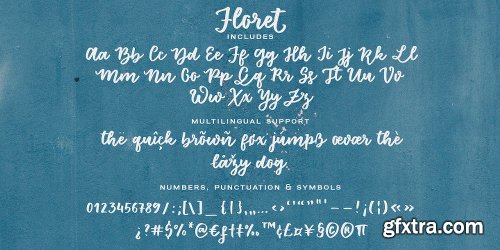 Floret
INCLUDES
Aa Bb Cc Dd Ee Ff Gg Hh Ii Jj Kk Ll
Mm Nn Oo Pp Qq Rr Ss Tt Uu Vv
Ww Xx Yy Zz
MULTILINGUAL SUPPORT
thë quîçk brõwñ fox jumpş œvær thè
låžy dog.
NUMBERS, PUNCTUATION & SYMBOLS
0123456789/:;[\]_{|},„…‹›‘’“”"'–—!¡()«»
¿?#$%*@€
gfxtra.com